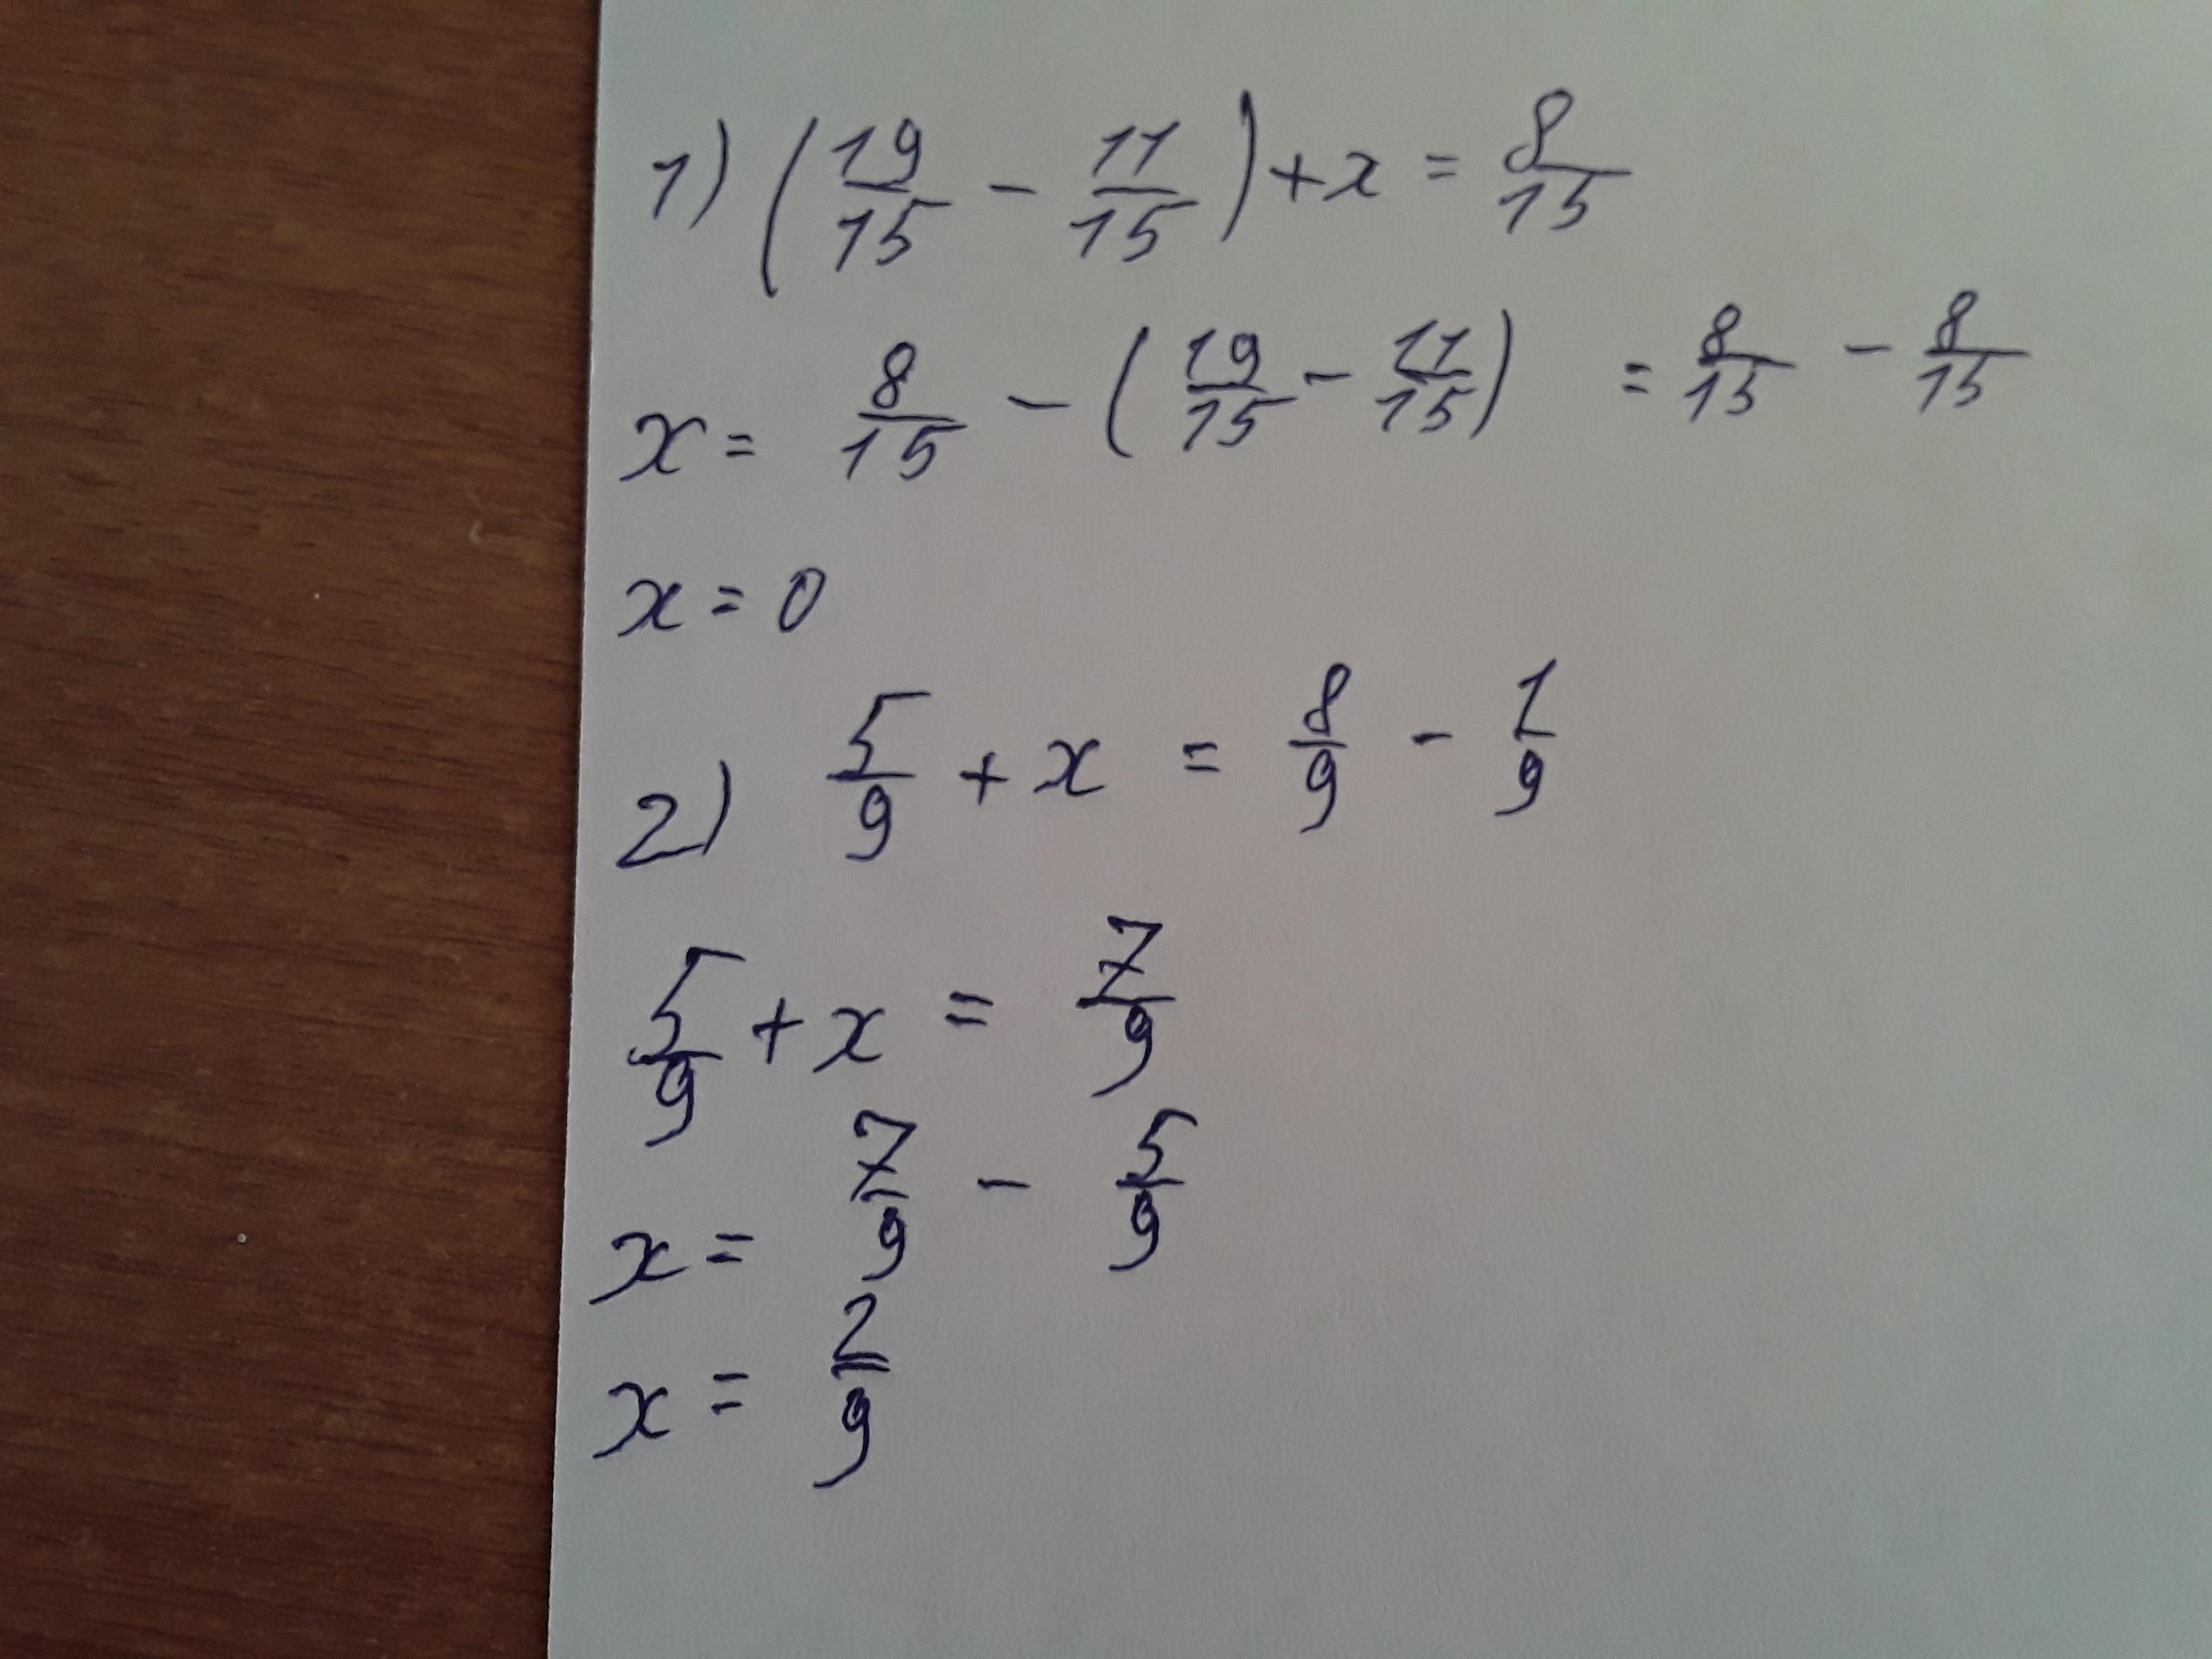 1) (19/15 - 11/15) + x = 8/15
x = 8/15 - (19/15 - 11/15) = 8/15 - 8/15
x = 0
2) 5/9 + x = 8/9 - 1/9
5/9 + x = 7/9
x = 7/9 - 5/9
x = 2/9